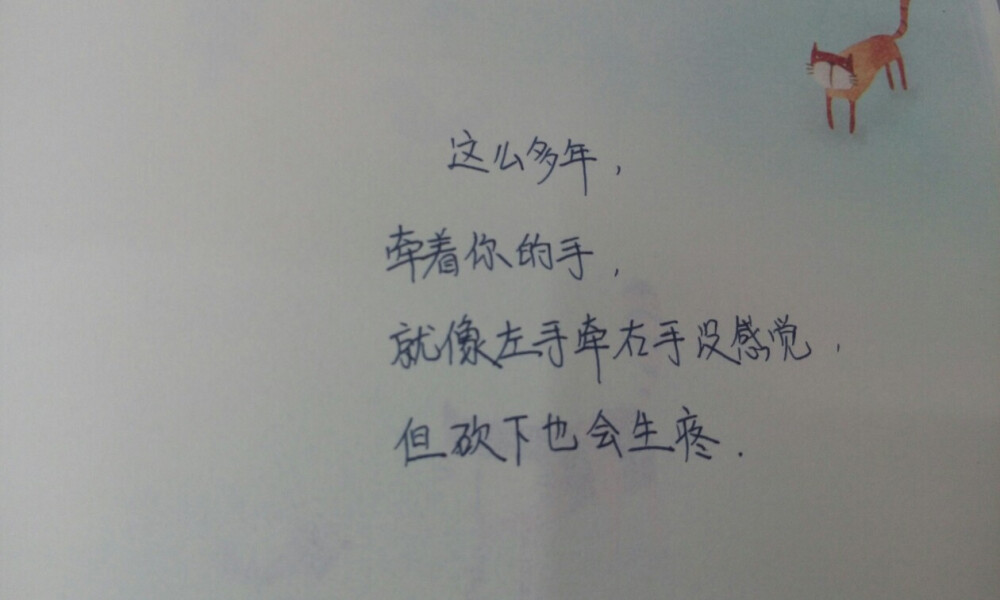 这么多年，
牵着你的手，
就像左手牵右手没感觉，
但砍下也会生疼.